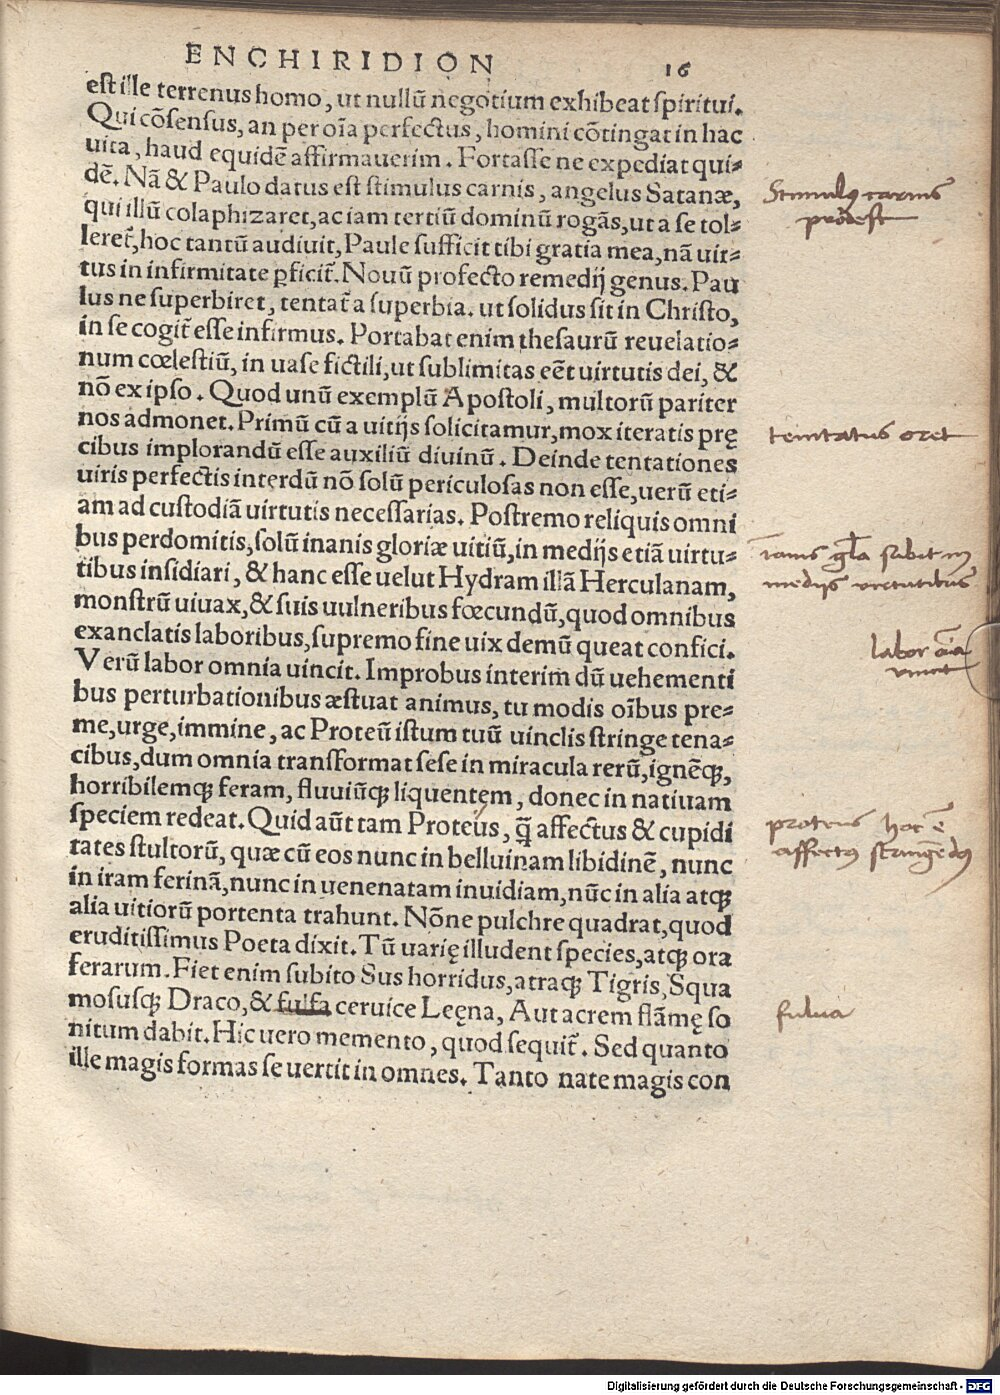 ENCHIRIDION 16
est ille terrenus homo, ut nullū negotium exhibeat spiritui.
Qui cōsensus, an per oīa perfectus, homini cōtingat in hac
uita, haud equidē affirmauerim. Fortasse ne expediat qui⸗
dē. Nā & Paulo datus est stimulus carnis, angelus Satanæ,
qui illū colaphizaret, ac iam tertiū dominū rogās, ut a se tol⸗
leret᷑, hoc tantū audiuit, Paule sufficit tibi gratia mea, nā uir⸗
tus in infirmitate ꝑficit᷑. Nouū profecto remedij genus. Pau
lus ne superbiret, tentat᷑ a superbia. ut solidus sit in Christo,
in se cogit᷑ esse infirmus. Portabat enim thesaurū reuelatio⸗
num cœlestiū, in uase fictili, ut sublimitas eēt uirtutis dei, &
nō ex ipso. Quod unū exemplū Apostoli, multorū pariter
nos admonet. Primū cū a uitijs solicitamur, mox iteratis prę
cibus implorandū esse auxiliū diuinū. Deinde tentationes
uiris perfectis interdū nō solū periculosas non esse, uerū eti⸗
am ad custodiā uirtutis necessarias. Postremo reliquis omni
bus perdomitis, solū inanis gloriæ uitiū, in medijs etiā uirtu⸗
tibus insidiari, & hanc esse uelut Hydram illā Herculanam,
monstrū uiuax, & suis uulneribus fœcundū, quod omnibus
exanclatis laboribus, supremo fine uix demū queat confici.
Verū labor omnia uincit. Improbus interim dū uehementi
bus perturbationibus æstuat animus, tu modis oībus pre⸗
me, urge, immine, ac Proteū istum tuū uinclis stringe tena⸗
cibus, dum omnia transformat sese in miracula rerū, ignēqꝫ,
horribilemqꝫ feram, fluuiūqꝫ liquentęm, donec in natiuam
speciem redeat. Quid aūt tam Proteus, q̄ affectus & cupidi
tates stultorū, quæ cū eos nunc in belluinam libidinē, nunc
in iram ferinā, nunc in uenenatam inuidiam, nūc in alia atqꝫ
alia uitiorū portenta trahunt. Nōne pulchre quadrat, quod
eruditissimus Poeta dixit. Tū uarię illudent species, atqꝫ ora
ferarum. Fiet enim subito Sus horridus, atraqꝫ Tigris, Squa
mosusqꝫ Draco, & fulfa ceruice Leęna, Aut acrem flāmę so
nitum dabit. Hic uero memento, quod sequit᷑. Sed quanto
ille magis formas se uertit in omnes. Tanto nate magis con
Stimulus carnis
prodest
temtatus oret
Inanis gl̄a subit in
medijs virtutibus
labor oīa
vincit
proteus hoc ē
affectus stringēdus
fulua
Digitalisierung gefördert durch die Deutsche Forschungsgemeinschaft - DFG